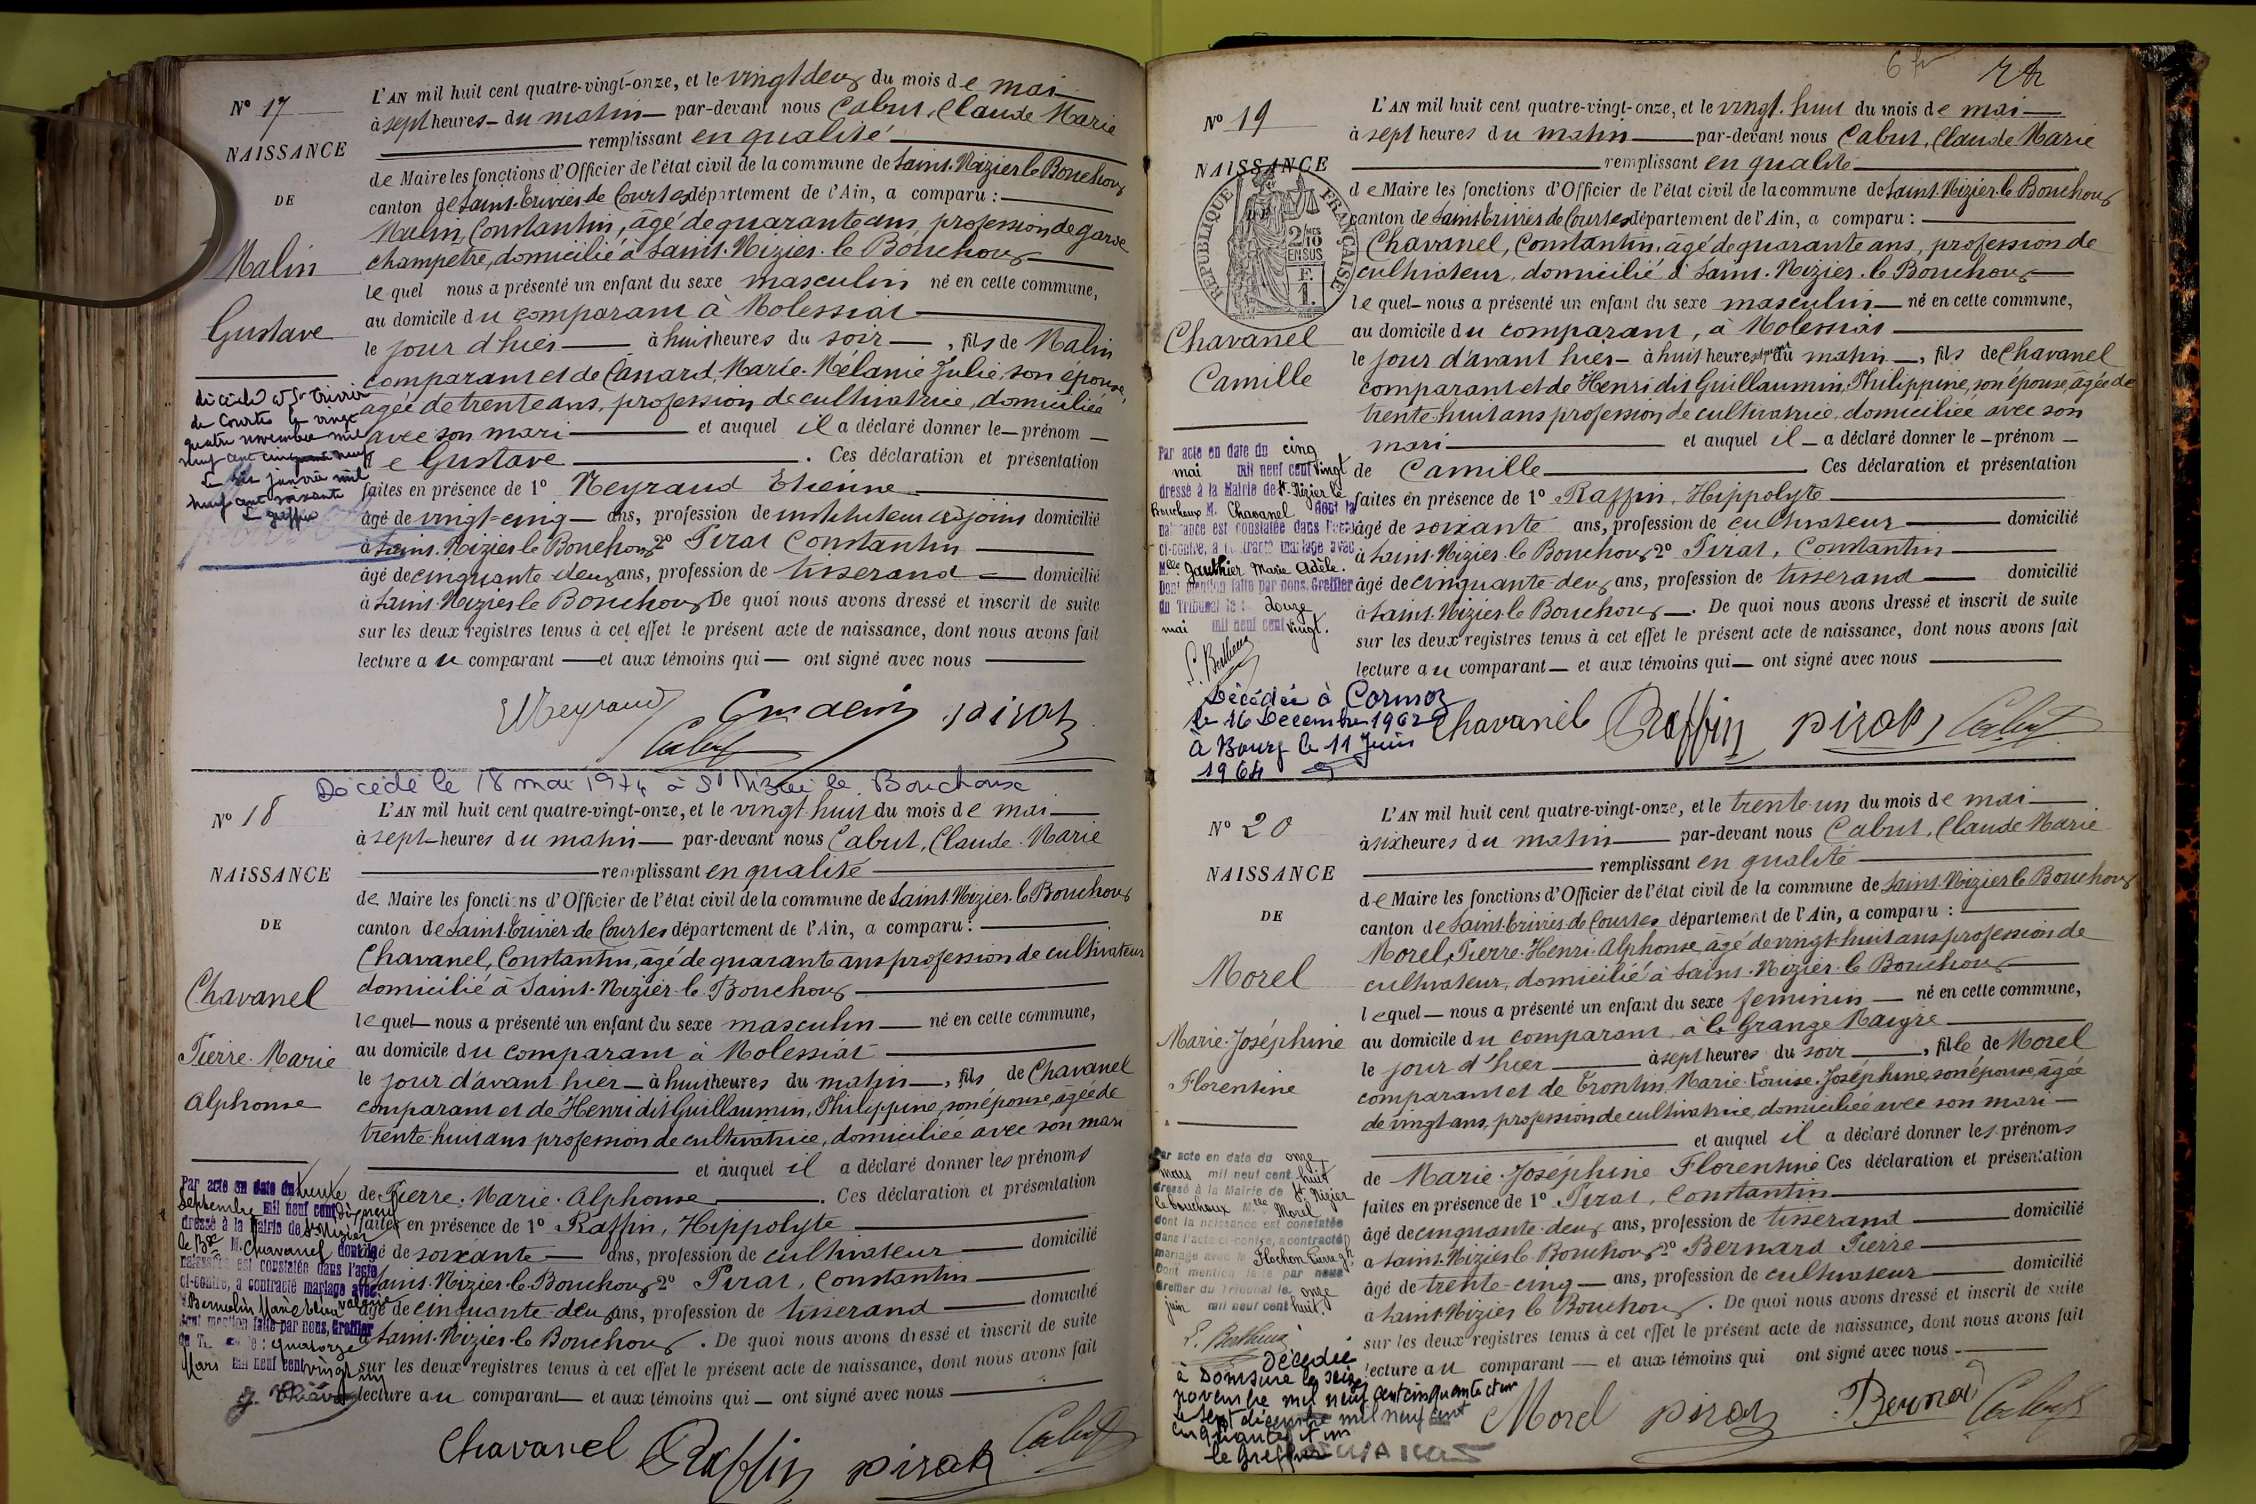 N° 17
NAISSANCE
DE
Malin
Gustave
décédé à St Trivier
de Courtes le vingt
quatre novembre mil
neuf cent cinquante neuf
Le six janvier mil
neuf cent soixante
Le greffier
L'AN mil huit cent quatre-vingt-onze, et le vingt deux du mois de mai
à sept heures du matin par-devant nous Cabut, Claude Marie
remplissant en qualité
de Maire les fonctions d'Officier de l'état civil de la commune de Saint-Nizier le Bouchoux
canton de Saint-Trivier de Courtes département de l'Ain, a comparu :
Malin, Constantin, âgé de quarante ans, profession de garde
champêtre, domicilié à Saint-Nizier-le Bouchoux
lequel nous a présenté un enfant du sexe masculin né en cette commune,
au domicile du comparant à Molessiat
le jour d'hier à huit heures du soir, fils de Malin
comparant et de Canard, Marie-Mélanie Julie, son épouse,
âgée de trente ans, profession de cultivatrice, domiciliée
avec son mari et auquel il a déclaré donner le prénom
de Gustave. Ces déclaration et présentation
faites en présence de 1° Neyraud Etienne
âgé de vingt-cinq ans, profession de instituteur adjoint domicilié
à Saint-Nizier le Bouchoux 2° Pirat Constantin
âgé de cinquante deux ans, profession de tisserand domicilié
à Saint-Nizier le Bouchoux De quoi nous avons dressé et inscrit de suite
sur les deux registres tenus à cet effet le présent acte de naissance, dont nous avons fait
lecture au comparant et aux témoins qui ont signé avec nous
ENeyraud pirat
Cabut
Décédé le 18 mai 1974 à St Nizier le Bouchoux
N° 18
NAISSANCE
DE
Chavanel
Pierre-Marie
Alphonse
Par acte en date du trente
septembre mil neuf cent dix neuf
dressé à la Mairie de St Nizier
le Bx M. Chavanel dont la
naissance est constatée dans l'acte
ci-contre, a contracté mariage avec
Mention faite par nous, Greffier
quatorze
Mars mil neuf cent vingt
un
L'AN mil huit cent quatre-vingt-onze, et le vingt-huit du mois de mai
à sept heures du matin par-devant nous Cabut, Claude-Marie
remplissant en qualité
de Maire les fonctions d'Officier de l'état civil de la commune de Saint-Nizier-le Bouchoux
canton de Saint-Trivier de Courtes département de l'Ain, a comparu :
Chavanel, Constantin, âgé de quarante ans profession de cultivateur
domicilié à Saint-Nizier-le-Bouchoux
lequel nous a présenté un enfant du sexe masculin né en cette commune,
au domicile du comparant à Molessiat
le jour d'avant hier à huit heures du matin, fils de Chavanel
comparant et de Henri dit Guillaumin, Philippine, son épouse, âgée de
trente-huit ans profession de cultivatrice, domiciliée avec son mari
et auquel il a déclaré donner les prénoms
de Pierre-Marie-Alphonse. Ces déclaration et présentation
faites en présence de 1° Raffin, Hippolyte
âgé de soixante ans, profession de cultivateur domicilié
à Saint-Nizier-le-Bouchoux 2° Pirat, Constantin
âgé de cinquante deux ans, profession de tisserand domicilié
à Saint-Nizier-le Bouchoux. De quoi nous avons dressé et inscrit de suite
sur les deux registres tenus à cet effet le présent acte de naissance, dont nous avons fait
lecture au comparant et aux témoins qui ont signé avec nous
Chavanel Raffin pirat Cabut
N° 19
NAISSANCE
RÉPUBLIQUE FRANÇAISE
2/10MES
EN SUS
F.
1.
Chavanel
Camille
Par acte en date du cinq
mai mil neuf cent vingt
dressé à la Mairie de St-Nizier le
Bouchoux M. Chavanel dont la
naissance est constatée dans l'acte
ci-contre, a contracté mariage avec
Mlle Gauthier Marie Adèle.
Dont mention faite par nous, Greffier
du Tribunal le : douze
mai mil neuf cent vingt.
Décédé à Cormoz
le 16 Decembre 1962
à Bourg le 11 Juin
1964
L'AN mil huit cent quatre-vingt-onze, et le vingt-huit du mois de mai
à sept heures du matin par-devant nous Cabut, Claude Marie
remplissant en qualité
de Maire les fonctions d'Officier de l'état civil de la commune de Saint-Nizier-le Bouchoux
canton de Saint-Trivier de Courtes département de l'Ain, a comparu :
Chavanel, Constantin, âgé de quarante ans, profession de
cultivateur, domicilié à Saint-Nizier-le Bouchoux
lequel nous a présenté un enfant du sexe masculin né en cette commune,
au domicile du comparant, à Molessiat
le jour d'avant hier à huit heures du matin, fils de Chavanel
comparant et de Henri dit Guillaumin, Philippine, son épouse, âgée de
trente-huit ans profession de cultivatrice, domiciliée avec son
mari et auquel il a déclaré donner le prénom
de Camille Ces déclaration et présentation
faites en présence de 1° Raffin, Hippolyte
âgé de soixante ans, profession de cultivateur domicilié
à Saint-Nizier-le Bouchoux 2° Pirat, Constantin
âgé de cinquante-deux ans, profession de tisserand domicilié
à Saint-Nizier-le Bouchoux. De quoi nous avons dressé et inscrit de suite
sur les deux registres tenus à cet effet le présent acte de naissance, dont nous avons fait
lecture au comparant et aux témoins qui ont signé avec nous
Chavanel Raffin pirat Cabut
N° 20
NAISSANCE
DE
Morel
Marie-Joséphine
Florentine
Par acte en date du onze
mars mil neuf cent huit
dressé à la Mairie de St Nizier
le bouchoux Mlle Morel
dont la naissance est constatée
dans l'acte ci-contre, a contracté
mariage avec M.
Dont mention faite par nous
Greffier du Tribunal le onze
juin mil neuf cent huit
Décédée
à Domsure le seize
novembre mil neuf cent cinquante et un
Le sept décembre mil neuf cent
cinquante et un
le Greffier
L'AN mil huit cent quatre-vingt-onze, et le trente-un du mois de mai
à six heures du matin par-devant nous Cabut, Claude Marie
remplissant en qualité
de Maire les fonctions d'Officier de l'état civil de la commune de Saint-Nizier le Bouchoux
canton de Saint-Trivier de Courtes département de l'Ain, a comparu :
Morel, Pierre-Henri-Alphonse, âgé de vingt-huit ans profession de
cultivateur, domicilié à Saint-Nizier-le Bouchoux
lequel nous a présenté un enfant du sexe feminin né en cette commune,
au domicile du comparant, à la Grange Maigre
le jour d'hier à sept heures du soir, fille de Morel
comparant et de Trontin, Marie-Louise-Joséphine, son épouse, âgée
de vingt ans, profession de cultivatrice, domiciliée avec son mari
et auquel il a déclaré donner les prénoms
de Marie-Joséphine Florentine Ces déclaration et présentation
faites en présence de 1° Pirat, Constantin
âgé de cinquante-deux ans, profession de tisserand domicilié
à Saint-Nizier le Bouchoux 2° Bernard Pierre
âgé de trente-cinq ans, profession de cultivateur domicilié
à Saint-Nizier le Bouchoux. De quoi nous avons dressé et inscrit de suite
sur les deux registres tenus à cet effet le présent acte de naissance, dont nous avons fait
lecture au comparant et aux témoins qui ont signé avec nous
Morel pirat Bernard Cabut